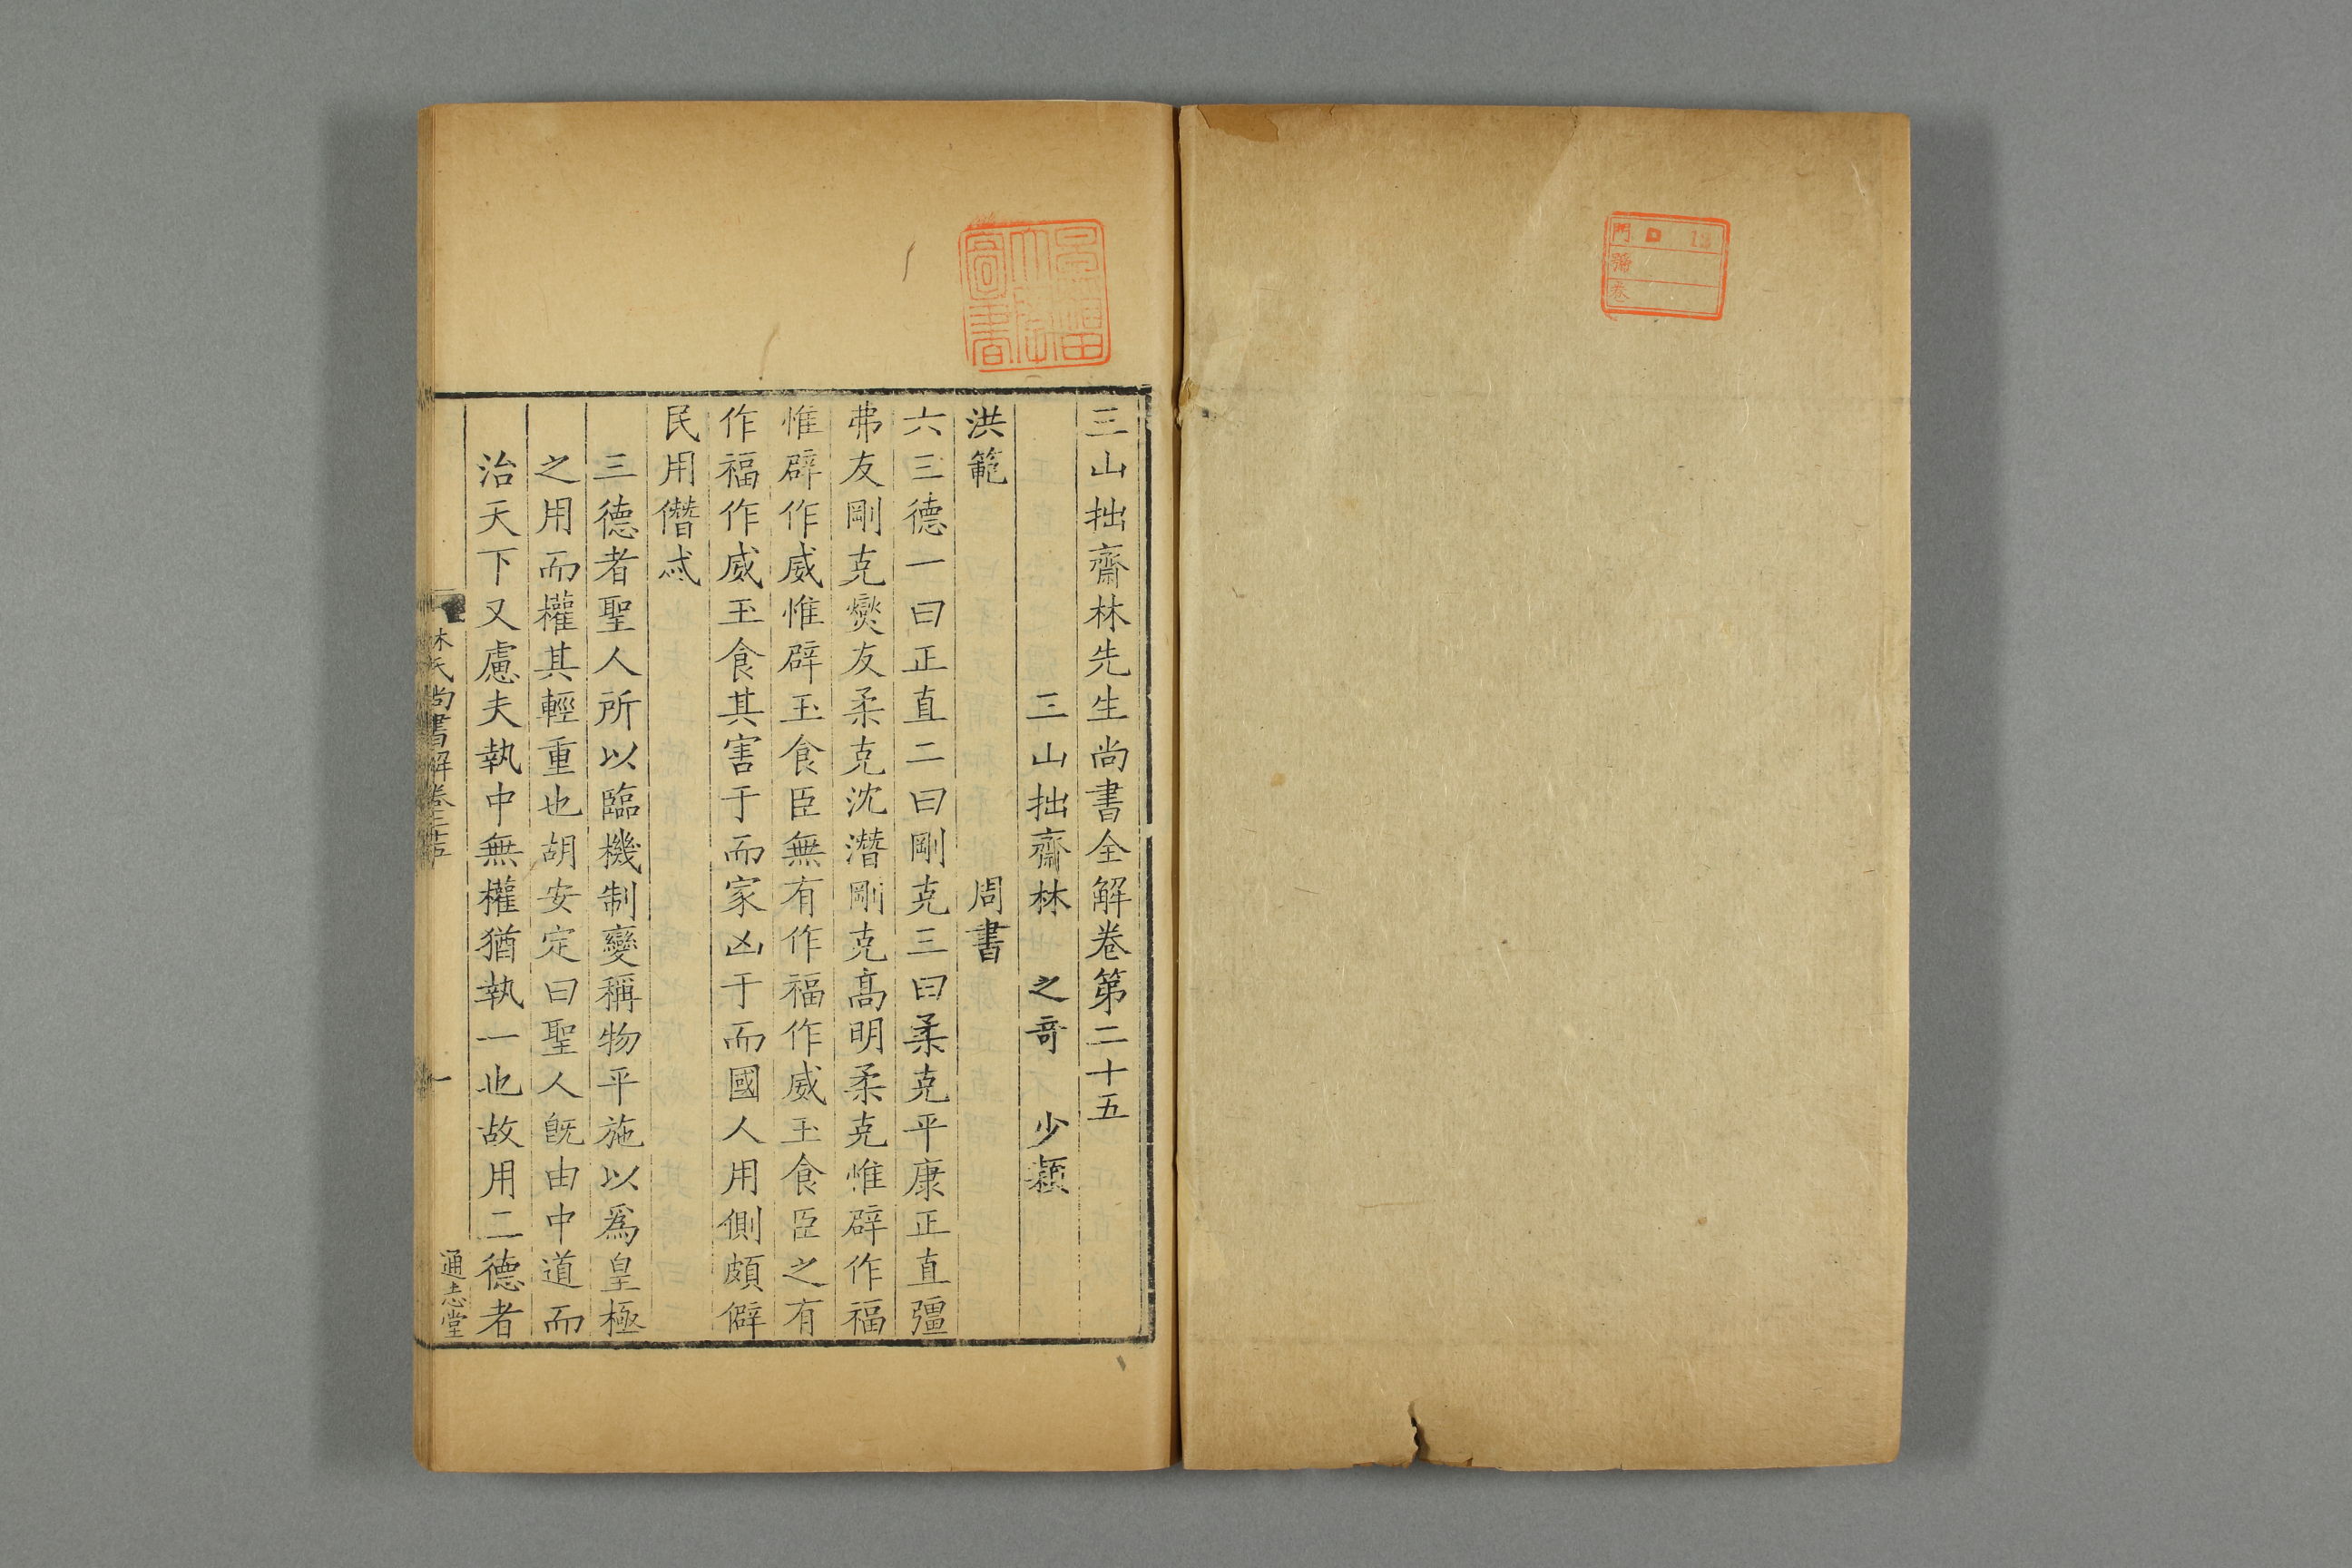 門 12
號
卷
圖書
三山拙齋林先生尚書全解卷第二十五
三山拙齋林 之奇 少穎
洪範 周書
六三德一曰正直二曰剛克三曰柔克平康正直彊
弗友剛克燮友柔克沈潛剛克高明柔克惟辟作福
惟辟作威惟辟玉食臣無有作福作威玉食臣之有
作福作威玉食其害于而家凶于而國人用側頗僻
民用僭忒
三德者聖人所以臨機制變稱物平施以爲皇極
之用而權其輕重也胡安定曰聖人旣由中道而
治天下又慮夫執中無權猶執一也故用二德者
林氏尚書解卷二十五 一 通志堂